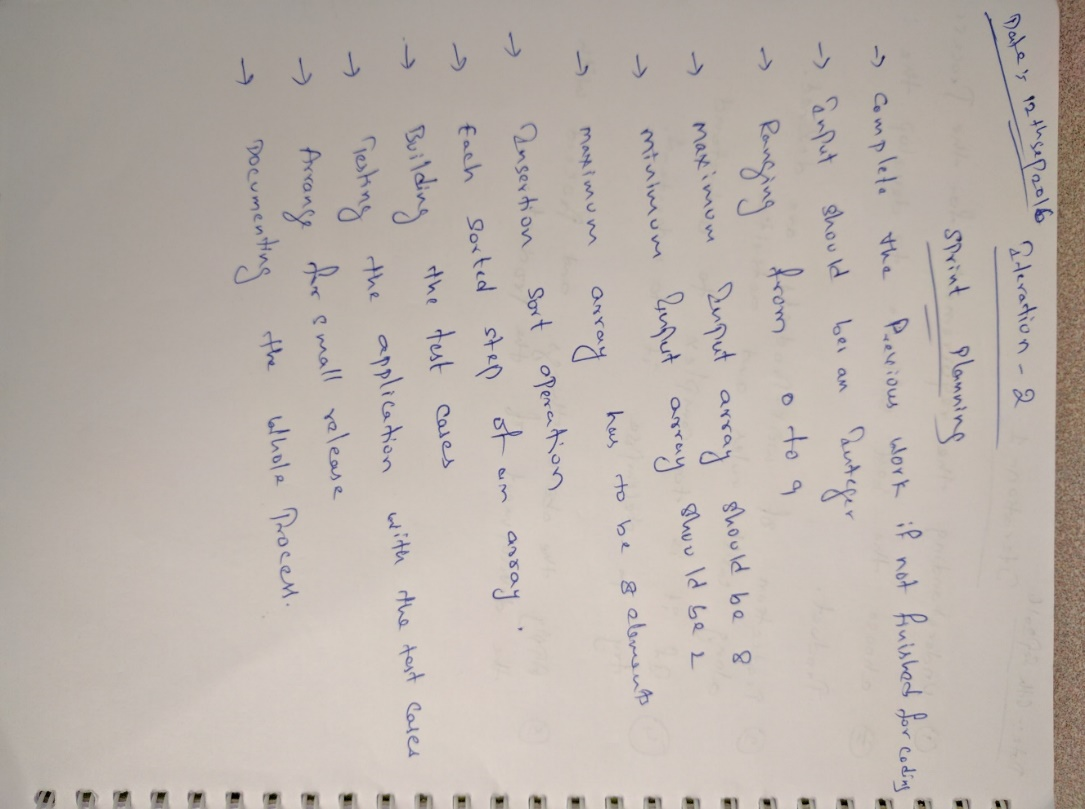 Date: 12thsep2016
Iteration - 2
Sprint Planning
→ Complete the Previous work if not finished for coding
→ Input should be an Integer
→ Ranging from 0 to 9
→ Maximum Input array should be 8
→ minimum Input array should be 2
→ maximum array has to be 8 elements
→ Insertion Sort operation
→ Each sorted step of an array.
→ Building the test cases
→ Testing the application with the test cases
→ Arrange for small release
→ Documenting the whole Process.